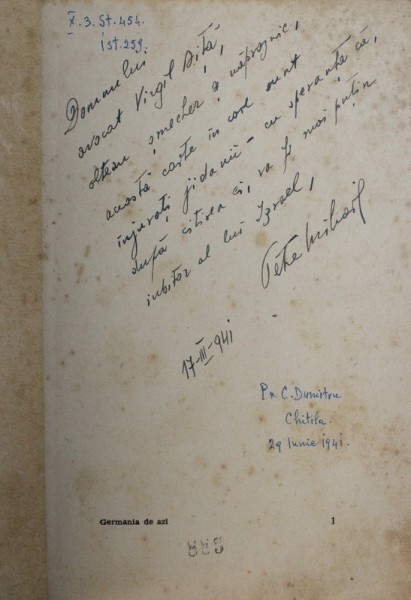 X.3.St.454.
ist.259.
Domnului
avocat Virgil Aită,
oltean șmecher și năprasnic,
această carte în care sunt
înjurați jidanii – cu speranța că,
după citirea ei, va fi mai puțin
iubitor al lui Izrael,
Petre Mihail
17-III-941
Pr. C. Dumitru
Chitila
29 Iunie 1941.
Germania de azi
1
885